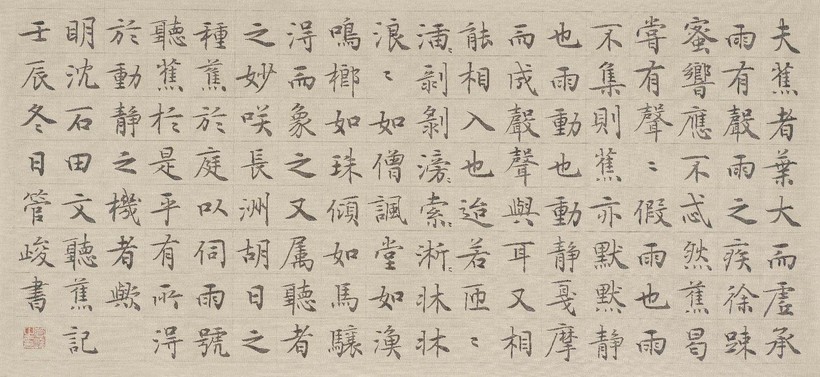 夫蕉者葉大而虛承
雨有聲雨之疾徐踈
蜜響應不忒然蕉曷
嘗有聲〻假雨也雨
不集則蕉亦默默静
也雨動也動静戛摩
而成聲聲與耳又相
能相入也迨若匝〻
剥剥滂〻索〻淅〻牀牀
浪〻如僧諷堂如漁
鳴榔如珠傾如馬驤
淂而象之又属聽者
之妙咲長洲胡日之
種蕉於庭以伺雨號
聽蕉於是乎有所淂
於動静之機者歟
明沈石田文聽蕉記
壬辰冬日管峻書